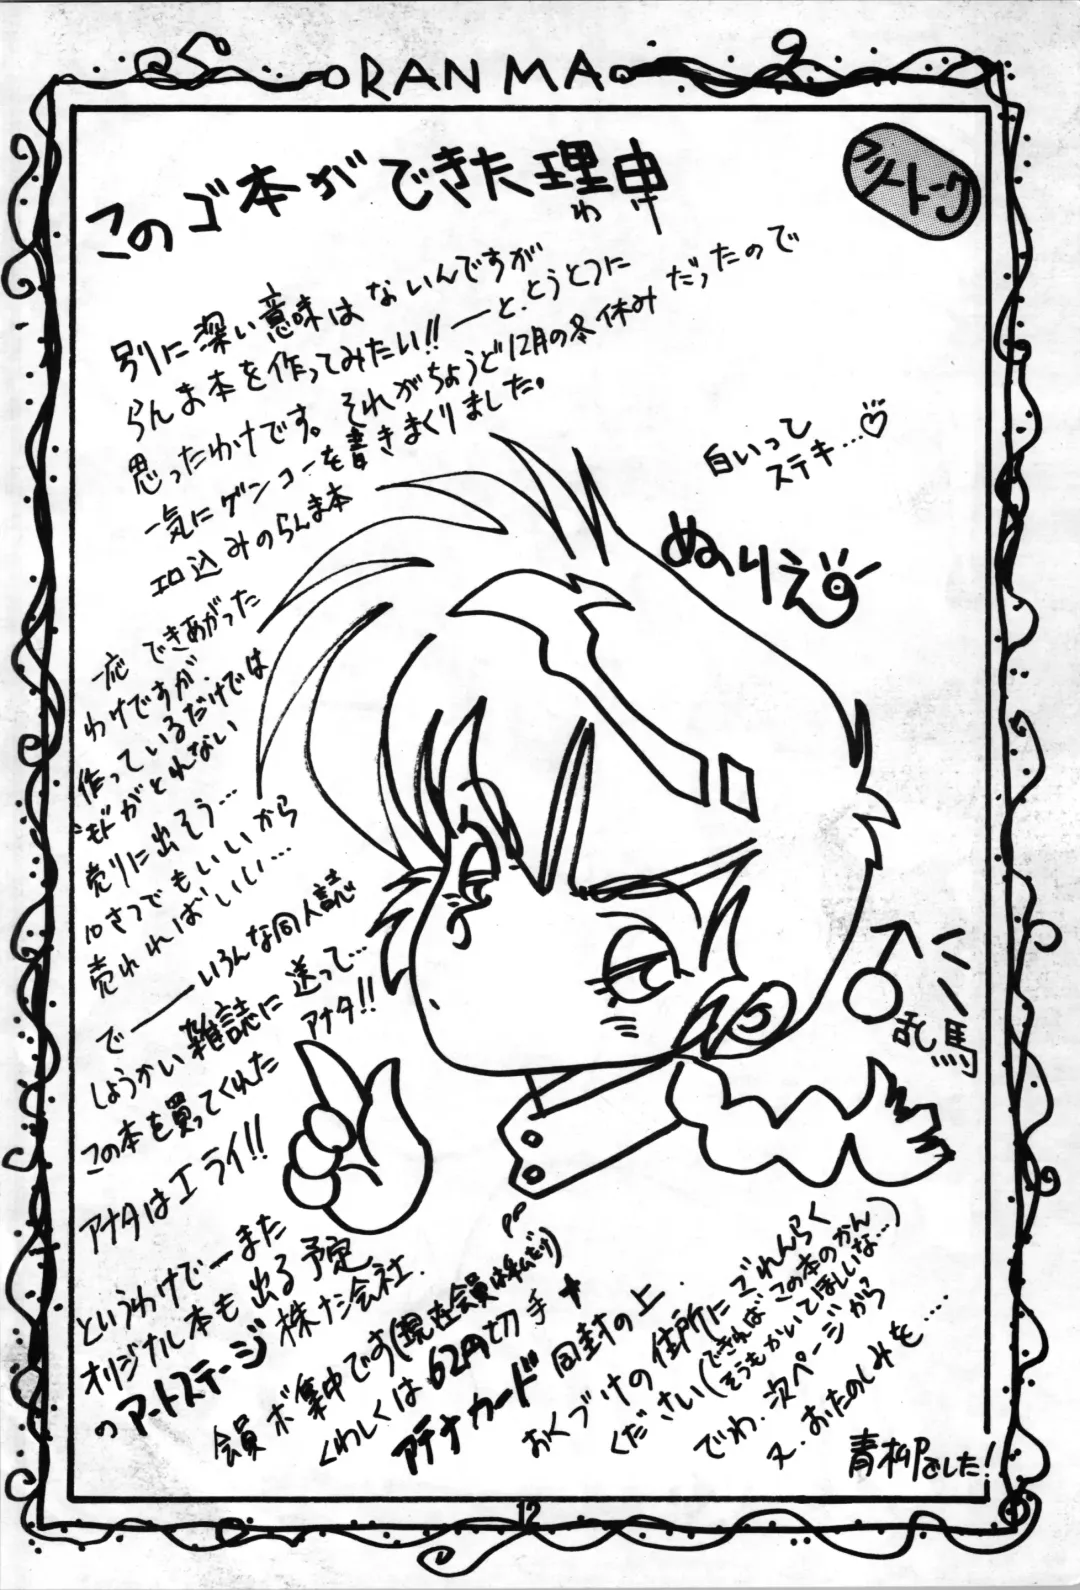 RANMA
フリートーク
このゴ本ができた理由
わけ
別に深い意味はないんですが
らんま本を作ってみたい!!──と、とうとつに
思ったわけです。それがちょうど12月の冬休みだったので
一気にゲンコーを書きまくりました。
エロ込みのらんま本
一応できあがった
わけですが、
作っているだけでは
モトがとれない
売りに出そう…
10さつでもいいから
売れればいい…
で───いろんな同人誌
しょうかい雑誌に送って…
この本を買ってくれたアナタ!!
アナタはエライ!!
白いって
ステキ…♡
ぬりえ
♂
乱馬
というわけでーまた
オリジナル本も出る予定
のアートステージ株式会社.
会員ボ集中です(現在会員は私ひとり)
くわしくは62円切手+
アテナカード同封の上.
おくづけの住所にごれんらく
ください(できればこの本のかん
そうもかいてほしいな…)
でわ.次ページから
又.おたのしみを……
青柳でした!
12